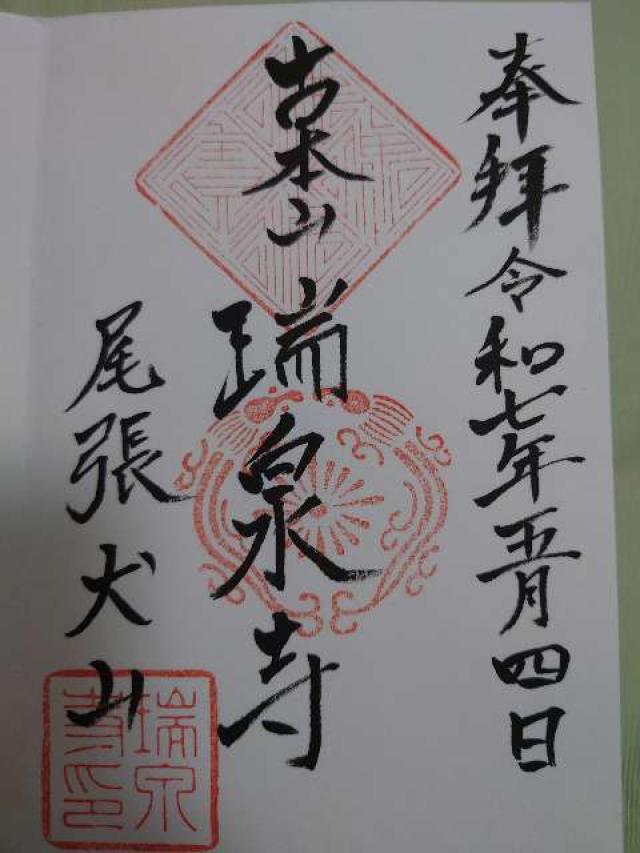 奉拝令和七年五月四日
古本山
瑞泉寺
尾張犬山
瑞泉
寺印